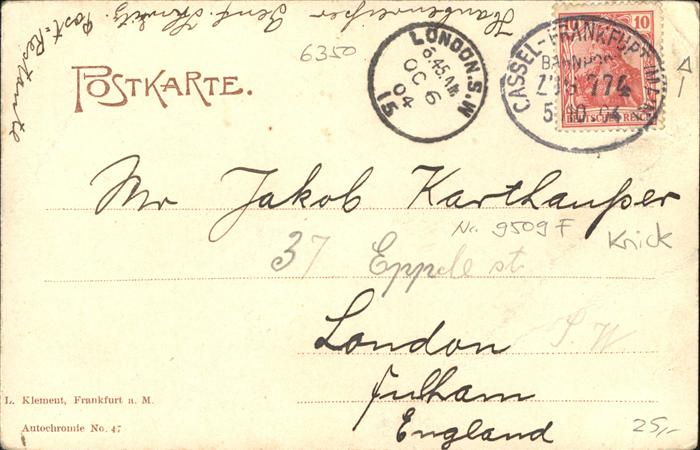 Post-Restante
6350
POSTKARTE.
LONDON.S.W
6.45.AM
OC 6
04
15
CASSEL-FRANKFURT (MAIN)
BAHNPOST
ZUG 774
5 10 04
10
DEUTSCHES REICH
A
Mr Jakob Karthauser
No. 9509 F
Knick
37 Eppel st
London S.W
Fulham
England
L. Klement, Frankfurt a. M.
Autochromie No. 47
25,-